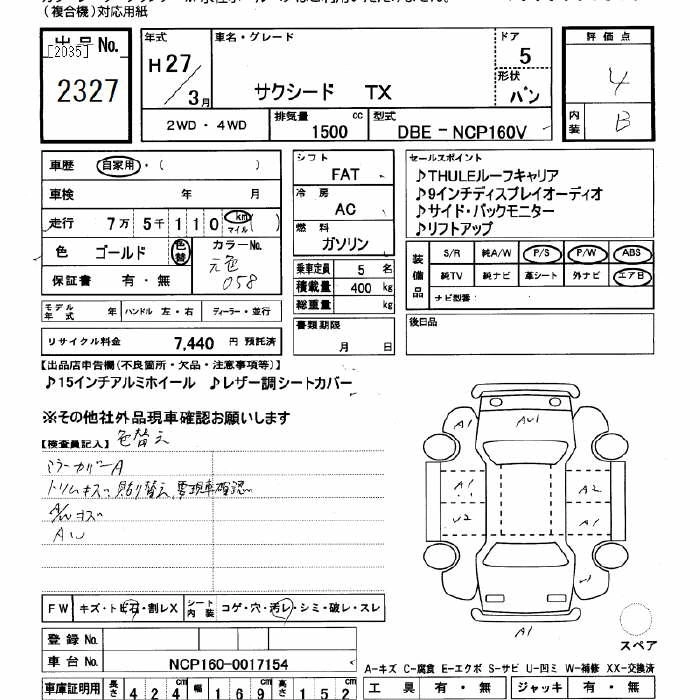 (複合機)対応用紙
出品No. [2035] 2327
年式 H27/3月
車名・グレード サクシード TX
ドア 5
形状 バン
評価点 4
内装 B
2WD・4WD
排気量 1500 cc
型式 DBE-NCP160V
車歴 自家用・( )
車検 年 月
走行 7万5千110 km マイル ( )
色 ゴールド 色替
カラーNo. 元色 058
保証書 有・無
シフト FAT
冷房 AC
燃料 ガソリン
乗車定員 5 名
積載量 400 kg
総重量 kg
書類期限 月 日
セールスポイント
♪THULEルーフキャリア
♪9インチディスプレイオーディオ
♪サイド・バックモニター
♪リフトアップ
装備品 S/R 純A/W P/S P/W ABS
純TV 純ナビ 革シート 外ナビ エアB
ナビ型番
後日品
モデル年式 年 ハンドル 左・右 ディーラー・並行
リサイクル料金 7,440 円 預託済
【出品店申告欄(不良箇所・欠品・注意事項等)】
♪15インチアルミホイール ♪レザー調シートカバー
※その他社外品現車確認お願いします
【検査員記入】 色替え
ミラーカバーA
トリムキズ 貼り替え 要現車確認
キズ
AW
A1 AU1
A1 A2
U2 A1
A1
FW キズ・トビ石・割レX シート内装 コゲ・穴・汚レ・シミ・破レ・スレ
登録No.
車台No. NCP160-0017154
スペア
A-キズ C-腐食 E-エクボ S-サビ U-凹ミ W-補修 XX-交換済
車庫証明用 長さ 424 幅 169 高さ 152
工具 有・無 ジャッキ 有・無